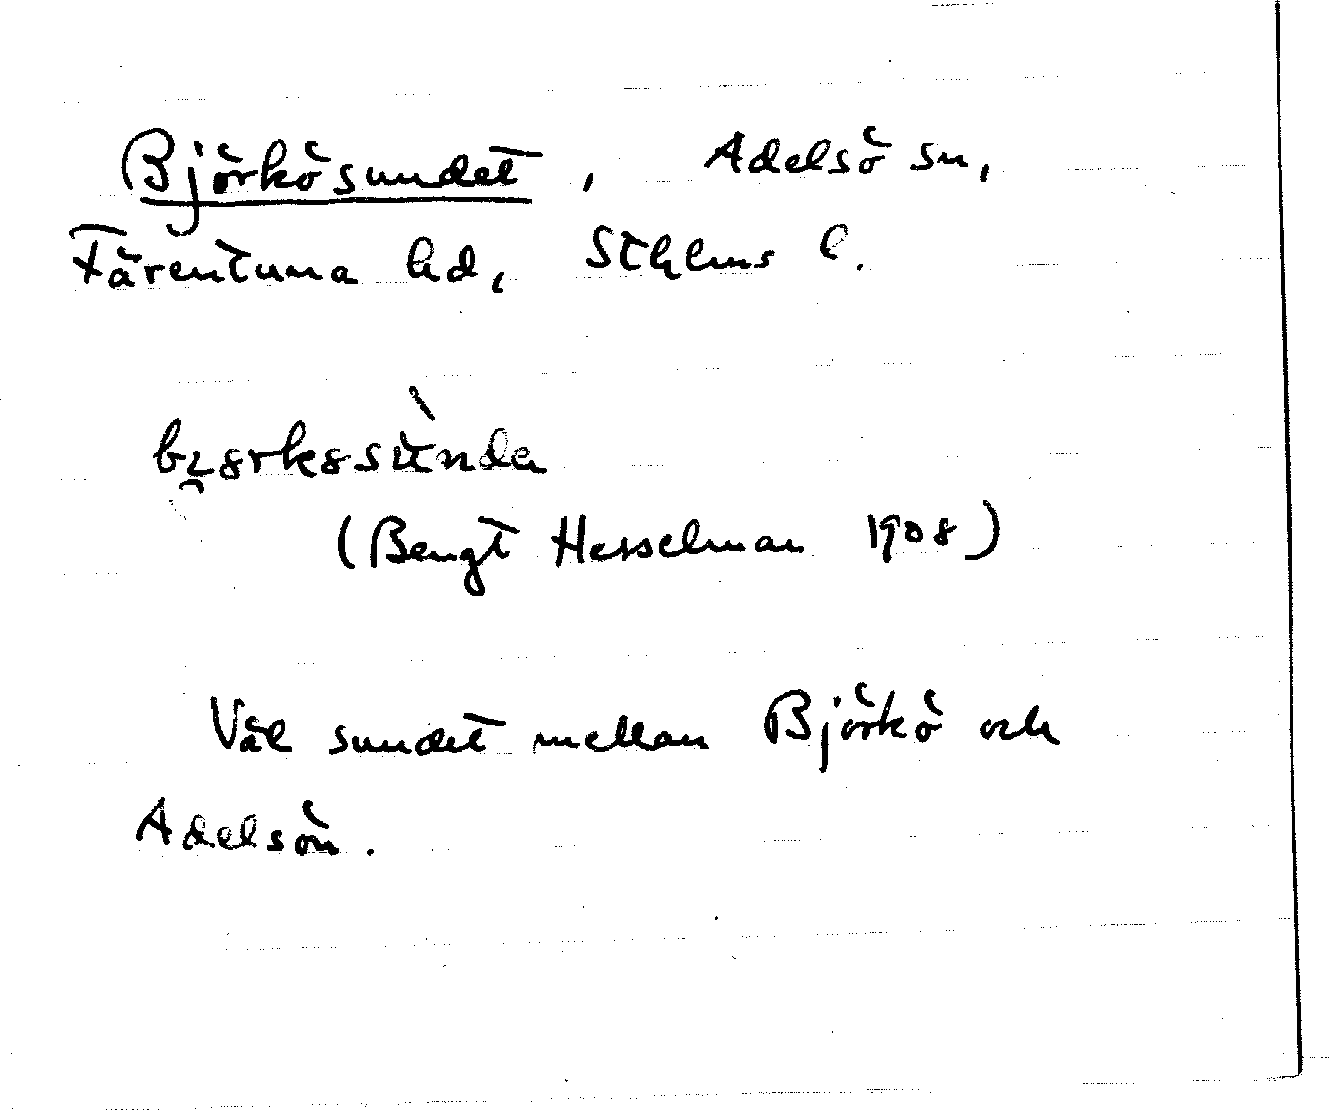 Björkösundet, Adelsö sn,
Färentuna hd, Sthlms l.
(Bengt Hesselman 1908)
Väl sundet mellan Björkö och
Adelsön.